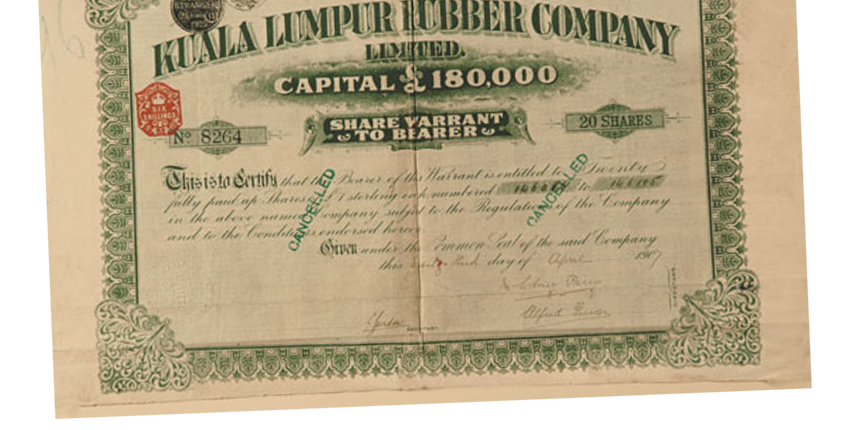 KUALA LUMPUR RUBBER COMPANY
LIMITED.
CAPITAL £180,000
SIX
SHILLINGS
SHARE WARRANT
TO BEARER
Nº 8264
20 SHARES
This is to Certify that the Bearer of this Warrant is entitled to Twenty
fully paid up Shares of £1 sterling each numbered to
in the above named Company subject to the Regulations of the Company
and to the Conditions endorsed hereon
CANCELLED
CANCELLED
Given under the Common Seal of the said Company
this day of April 1907
Alfred